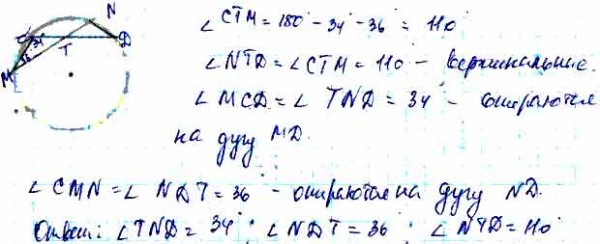 ∠CTM = 180° - 34° - 36° = 110
∠NTD = ∠CTM = 110 - вертикальные.
∠MCD = ∠TND = 34 - опираются
на дугу MD.
∠CMN = ∠NDT = 36 - опираются на дугу ND.
Ответ: ∠TND = 34° ∠NDT = 36° ∠NTD = 110
N
C
34
T
D
36
M